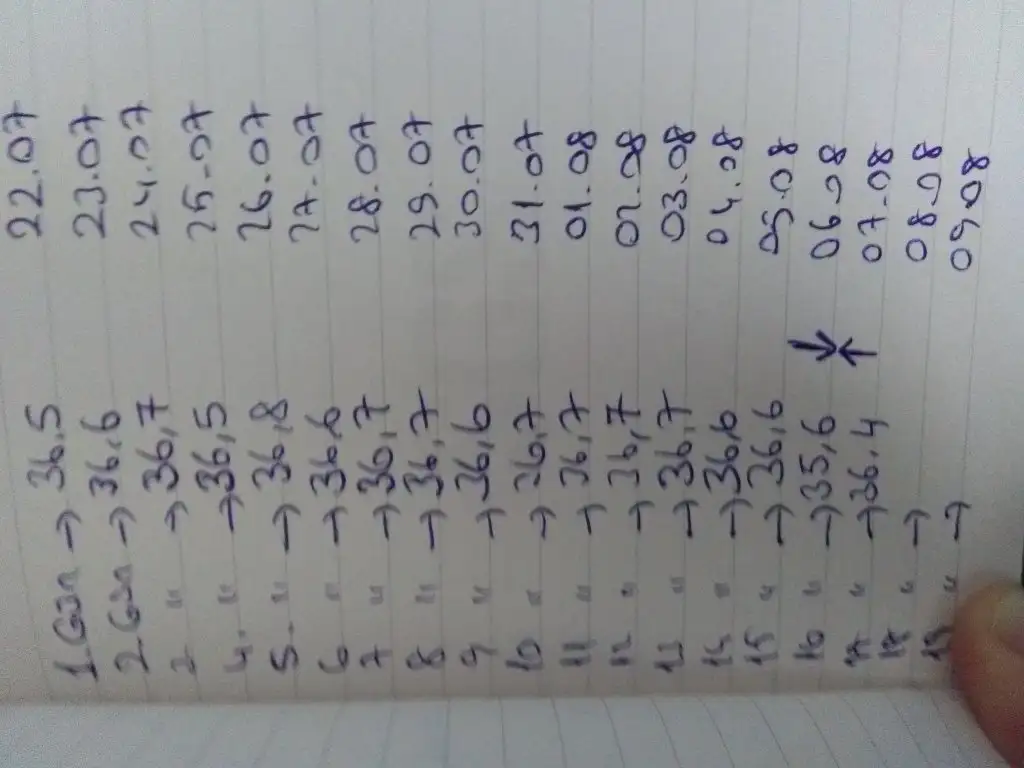 1. Gün → 36.5 22.07
2. Gün → 36.6 23.07
3 " → 36,7 24.07
4. " → 36,5 25.07
5. " → 36,8 26.07
6 " → 36,6 27.07
7 " → 36,7 28.07
8 " → 36,7 29.07
9 " → 36,6 30.07
10 " → 36,7 31.07
11 " → 36,7 01.08
12 " → 36,7 02.08
13 " → 36,7 03.08
14 " → 36,6 04.08
15 " → 36,6 05.08
16 " → 35,6 → 06.08
17 " → 36.4 ← 07.08
18 " → 08.08
19 " → 09.08